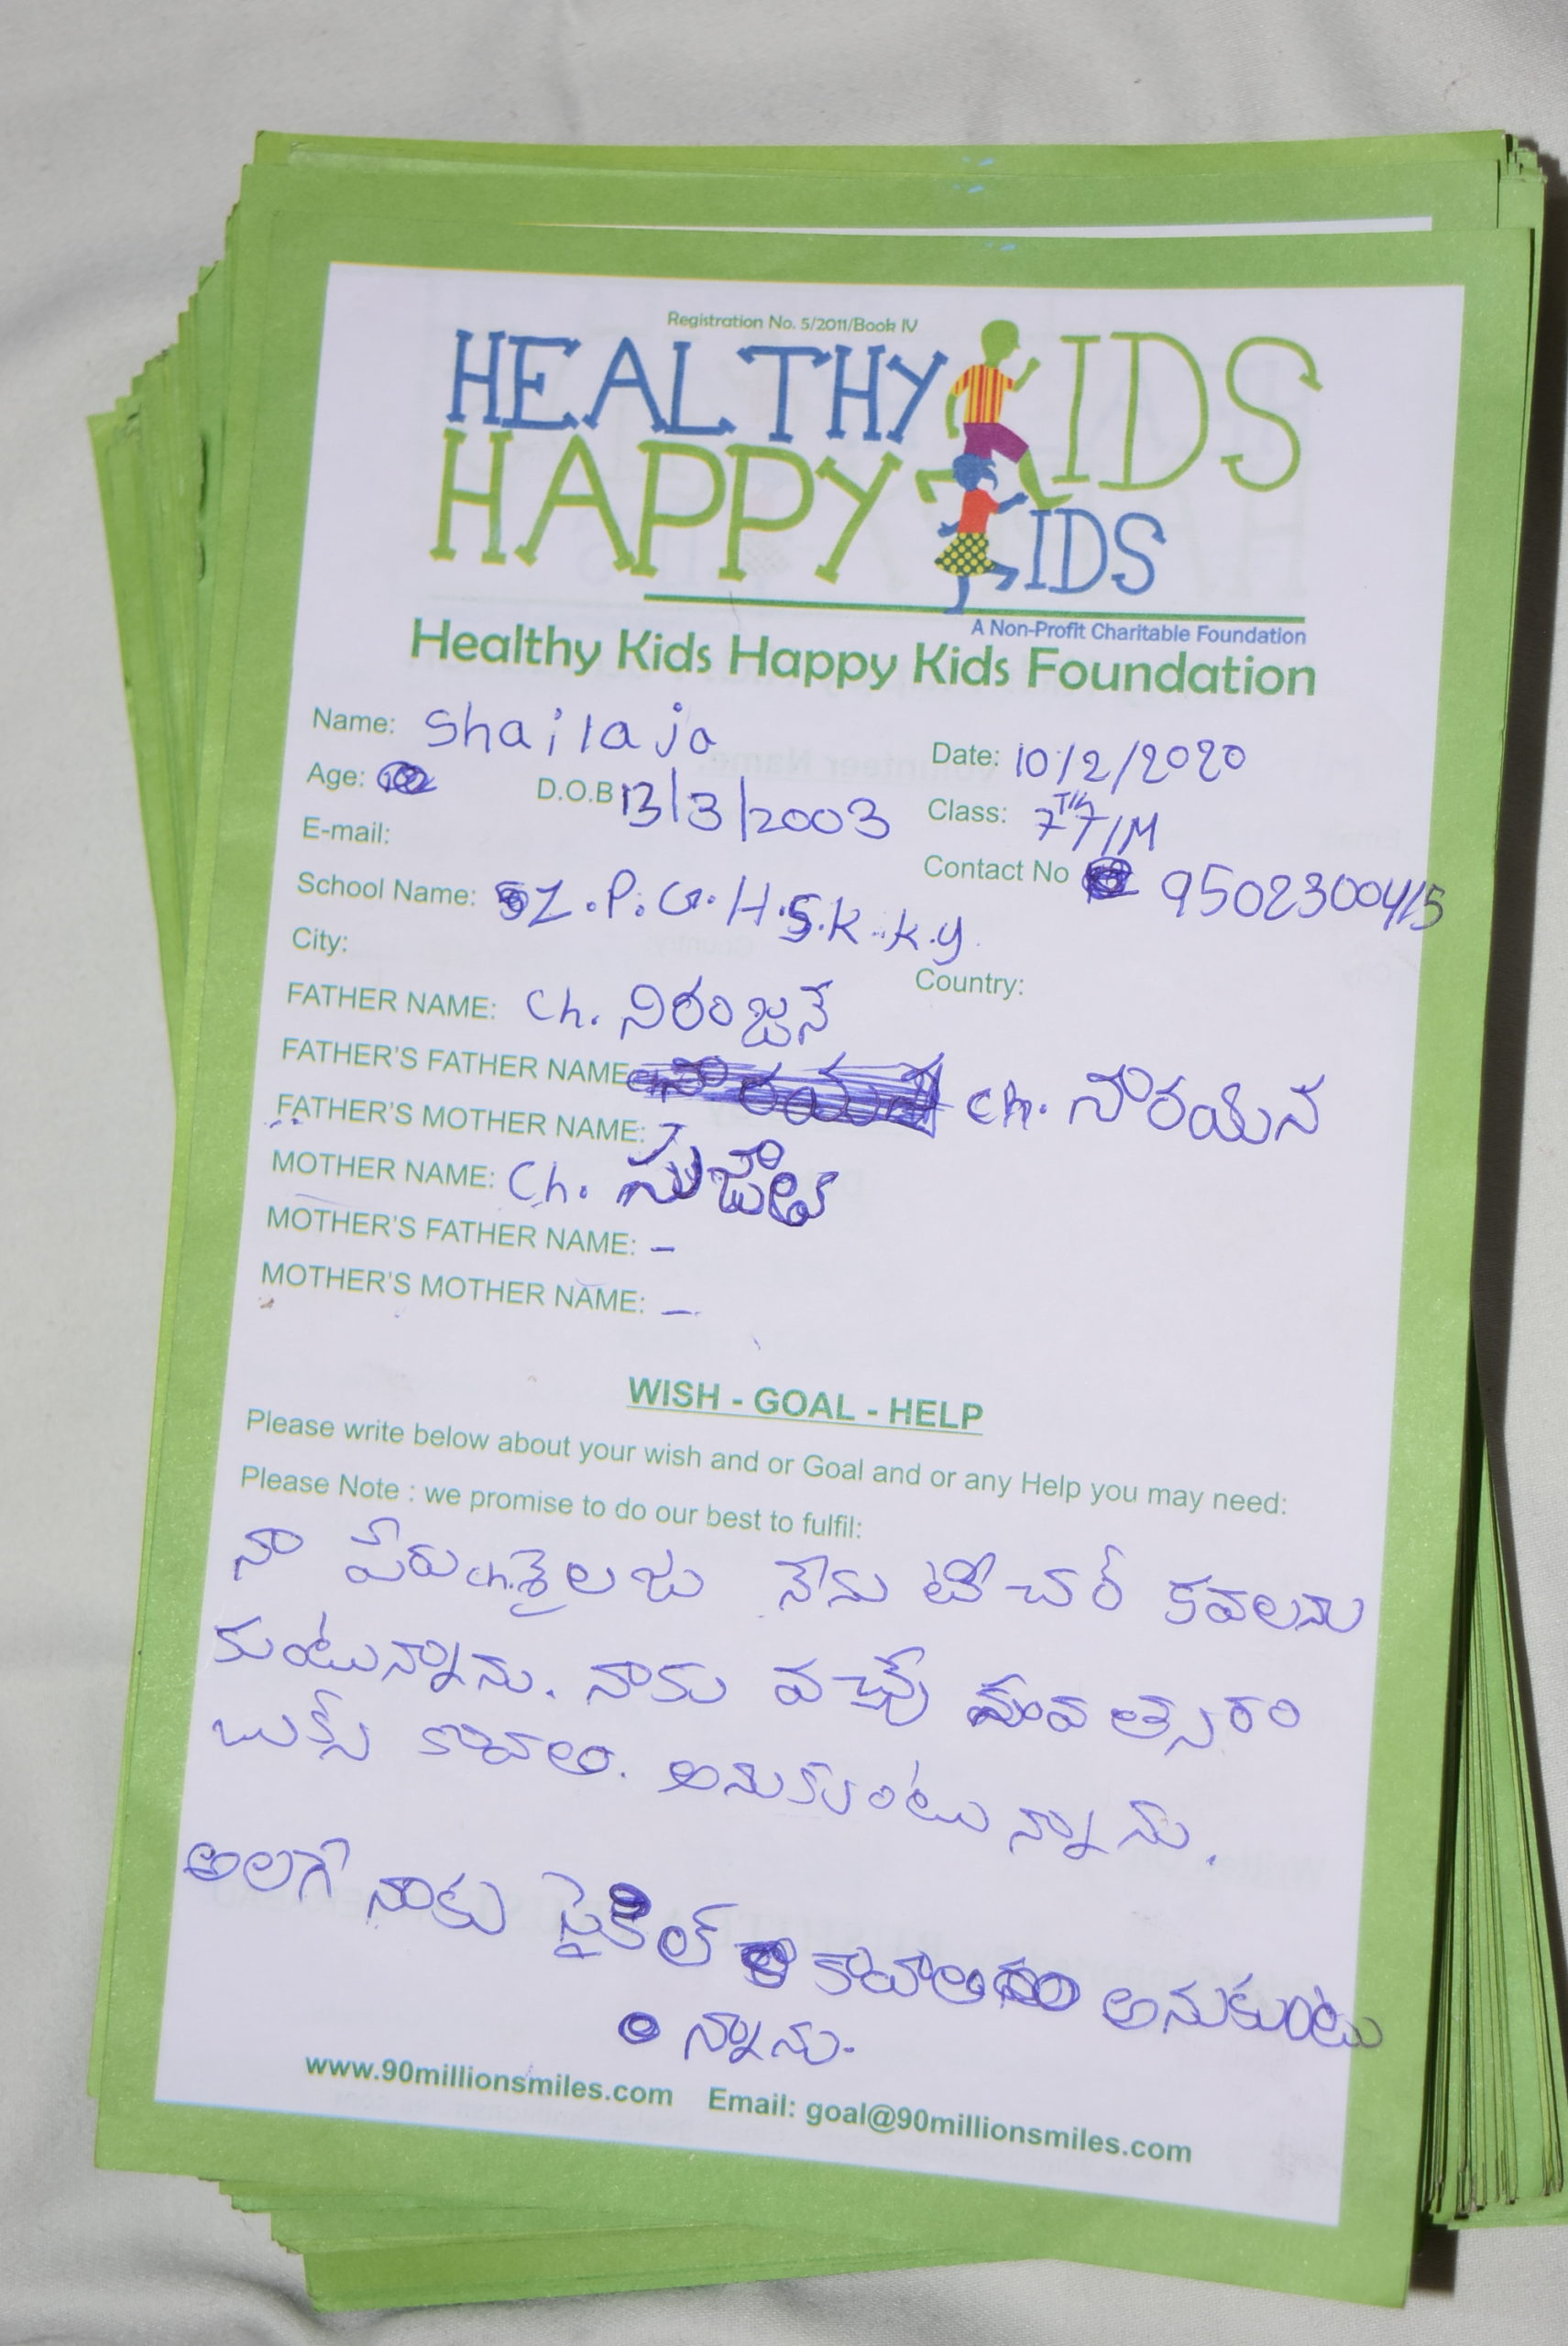 Registration No. 5/2011/Book IV
HEALTHY KIDS
HAPPY KIDS
A Non-Profit Charitable Foundation
Healthy Kids Happy Kids Foundation
Name: Shailaja
Date: 10/2/2020
Age:
D.O.B 13/3/2003
Class: 7TH T/M
E-mail:
Contact No 9502300415
School Name: Z.P.G.H.S.K.K.y
City:
Country:
FATHER NAME: Ch. నిరంజనే
FATHER'S FATHER NAME: ch. నారయన
FATHER'S MOTHER NAME: -
MOTHER NAME: Ch. సుజాత
MOTHER'S FATHER NAME: -
MOTHER'S MOTHER NAME: -
WISH - GOAL - HELP
Please write below about your wish and or Goal and or any Help you may need:
Please Note : we promise to do our best to fulfil:
నా పేరు ch. శైలజ నేను టీచర్ కవలను
కుంటున్నాను. నాకు వచ్చే సంవత్సరం
బుక్స్ కావాల. అనుకుంటున్నాను.
అలగే నాకు సైకిల్ కావాల అనుకుంటు
న్నాను.
www.90millionsmiles.com Email: goal@90millionsmiles.com